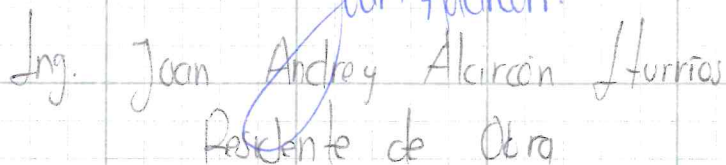 Ing. Joan Andrey Alarcón Iturrios
Residente de Obra